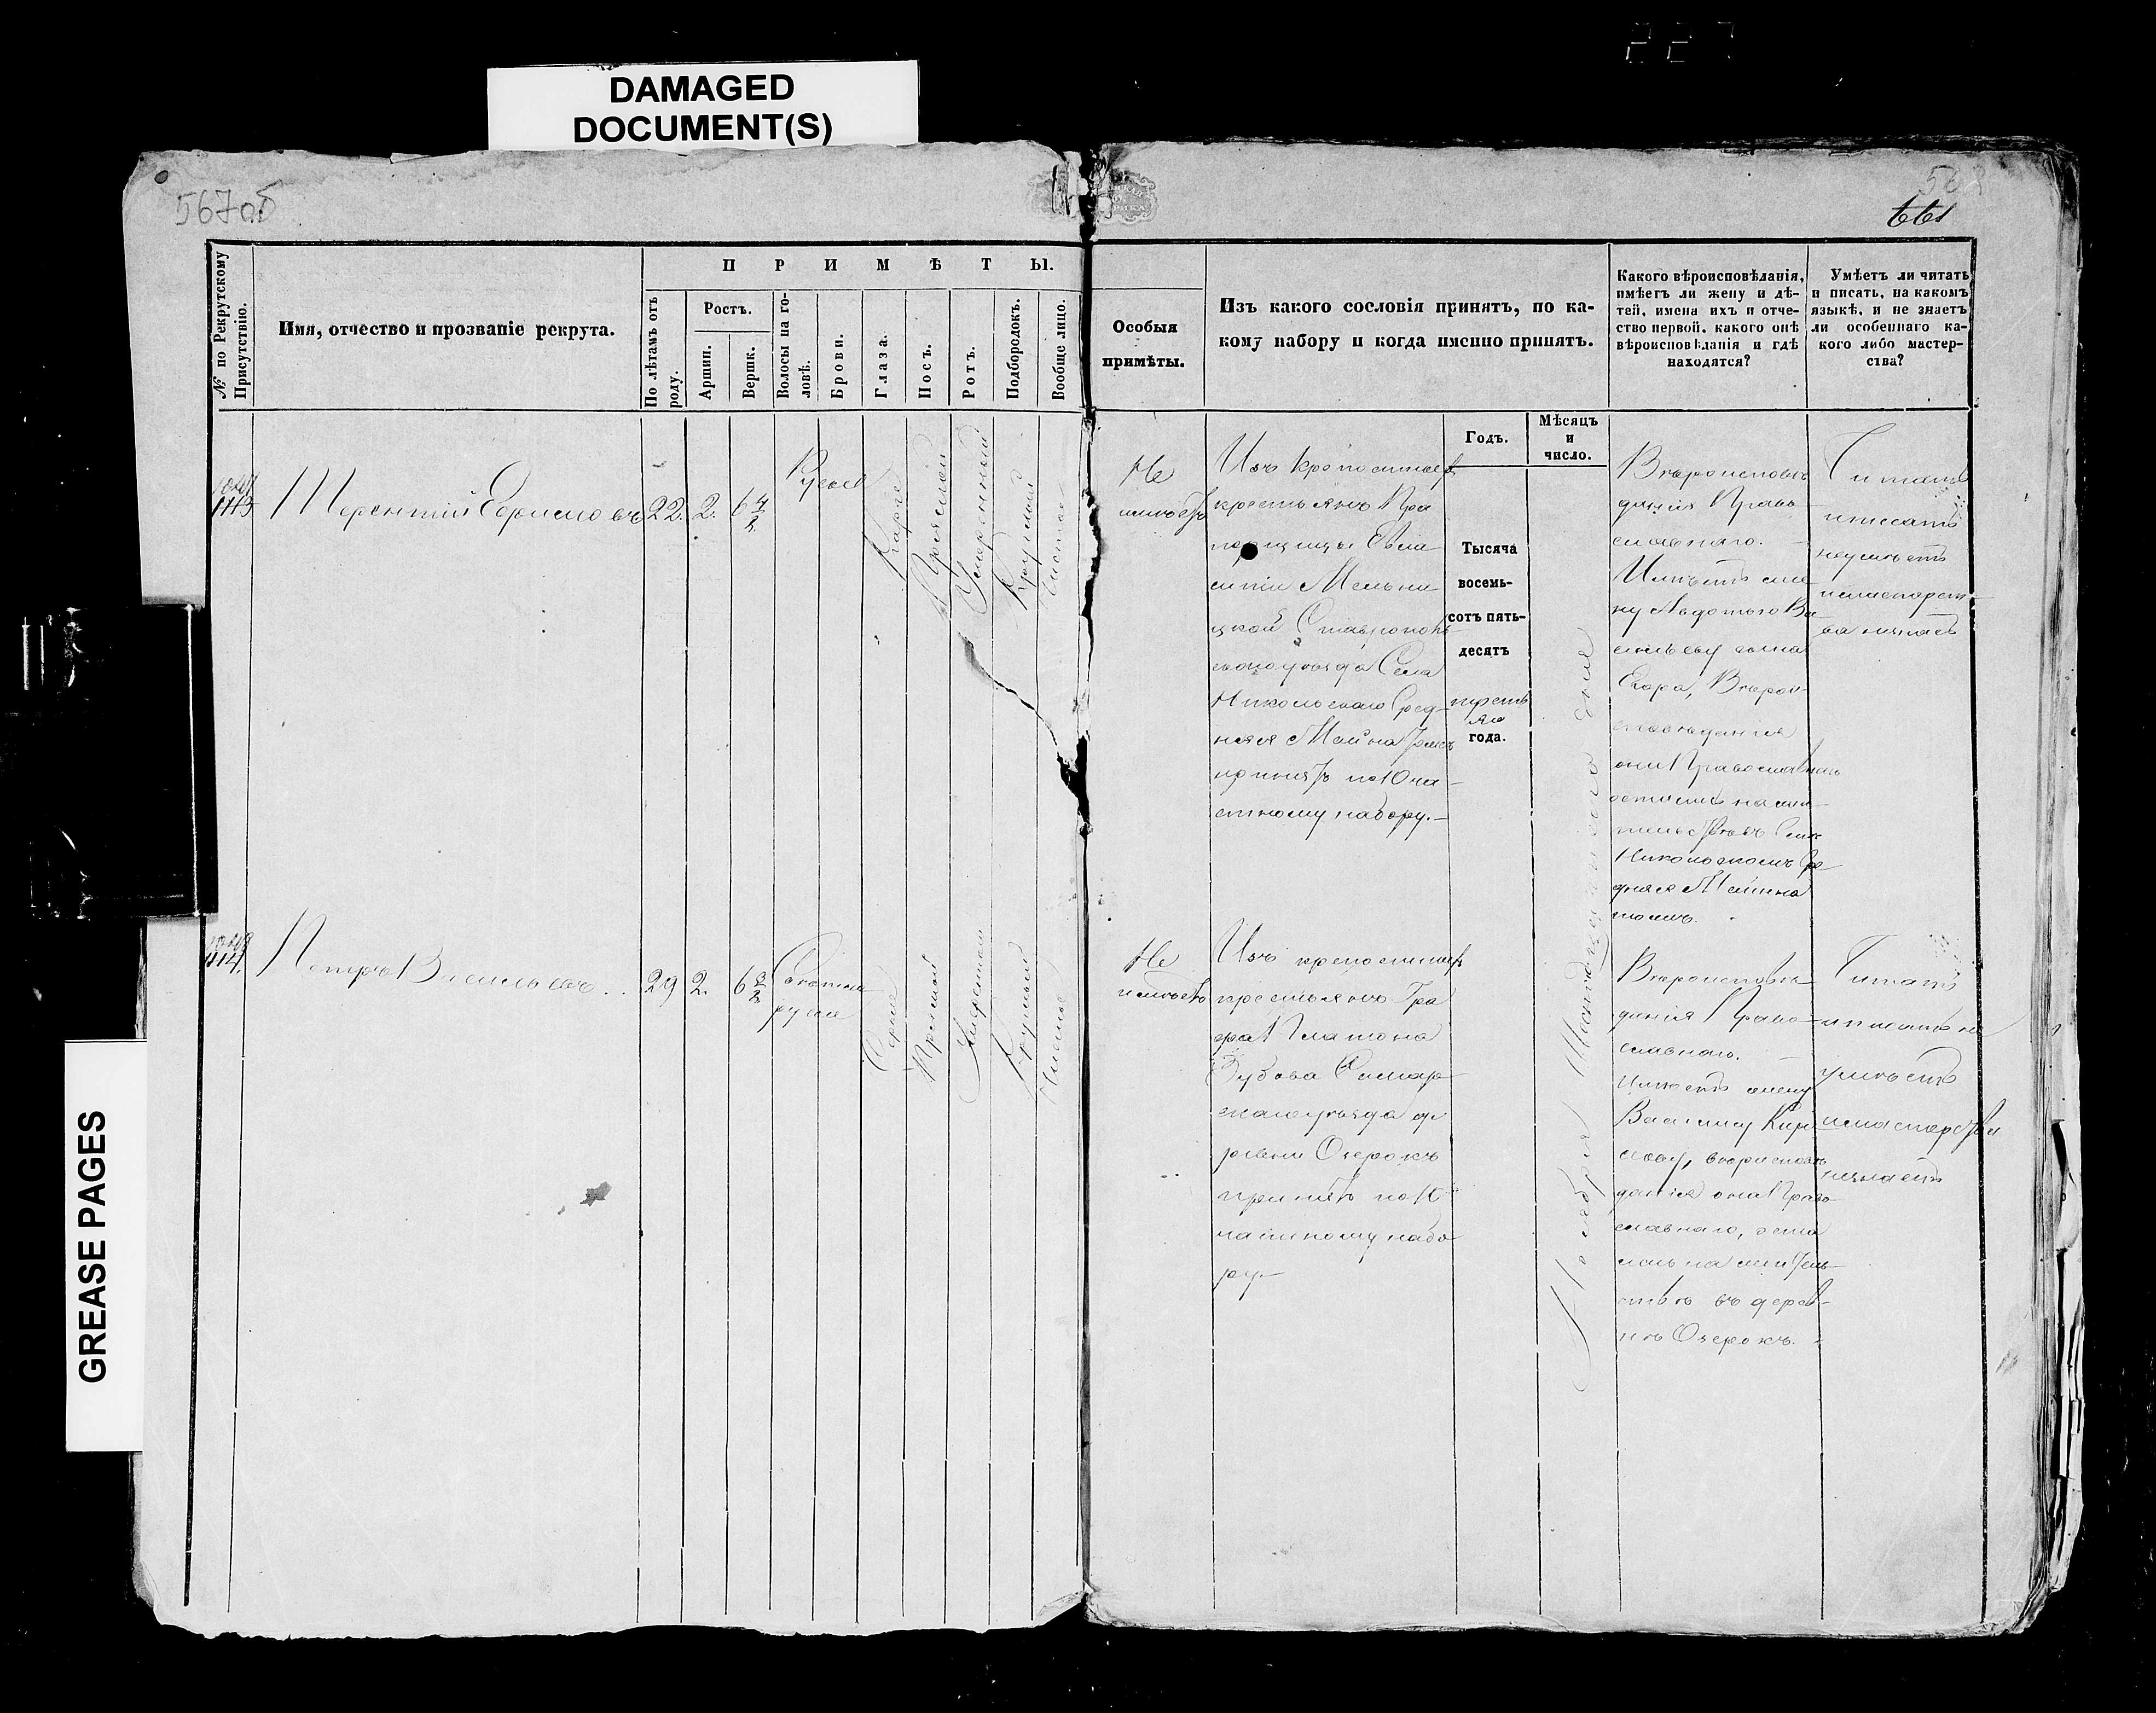 227
DAMAGED
DOCUMENT(S)
567об
568
661
№ по Рекрутскому
Присутствію.
Имя, отчество и прозваніе рекрута.
П Р И М Ѣ Т Ы.
По лѣтамъ отъ
роду.
Ростъ.
Аршин.
Вершк.
Волосы на го-
ловѣ.
Брови.
Глаза.
Носъ.
Ротъ.
Подбородокъ.
Вообще лицо.
Особыя
примѣты.
Изъ какого сословія принятъ, по ка-
кому набору и когда именно принятъ.
Годъ.
Мѣсяцъ
и
число.
Какого вѣроисповѣданія,
имѣетъ ли жену и дѣ-
тей, имена ихъ и отче-
ство первой, какого онѣ
вѣроисповѣданія и гдѣ
находятся?
Умѣетъ ли читать
и писать, на какомъ
языкѣ, и не знаетъ
ли особеннаго ка-
кого либо мастер-
ства?
1113
Терентий
22. 2. 6 4/8
Русые
Каріе
Умеренный
Круглый
Чистое
Не
имѣетъ
Изъ крепостныхъ
крестьянъ Пра
порщицы
Мельни
цкой Ставрополь
скаго уѣзда Села
Никольскаго Сред-
няя Майна тожъ
принятъ по Юча
стному набору.
Тысяча
восемь-
сотъ пять-
десятъ
треть
яго
года.
Вѣроисповѣ
данія Право
славнаго.
Имѣетъ же
ну Авдотью Ва
сильеву сына
Егора, Вѣрои
сповѣданія
они Православнаго
жи
тельствѣ въ Селѣ
Никольскомъ Сре
дняя Майна
тожъ.
Читать
и писать
неумѣетъ
и мастерст
ва незнаетъ
1114.
Петръ Васильевъ
29 2. 6 3/8
Свѣтло
русые
Серые
Прямой
Умеренный
Круглый
Чистое
Не
имѣетъ
Изъ крепостныхъ
крестьянъ Гра
фа Платона
Зубова Самар
скаго уѣзда де
ревни Озерокъ
принятъ по Ю
частному набо
ру.
Ноября
дня
Вѣроисповѣ
данія Право
славнаго.
Имѣетъ жену
Василису Кири
лову, вѣроисповѣ
данія она Право
славнаго, оста
лась на житель
ствѣ въ дерев-
нѣ Озерокъ.
Читать
и писать не
умѣетъ
и мастерства
незнаетъ
GREASE PAGES